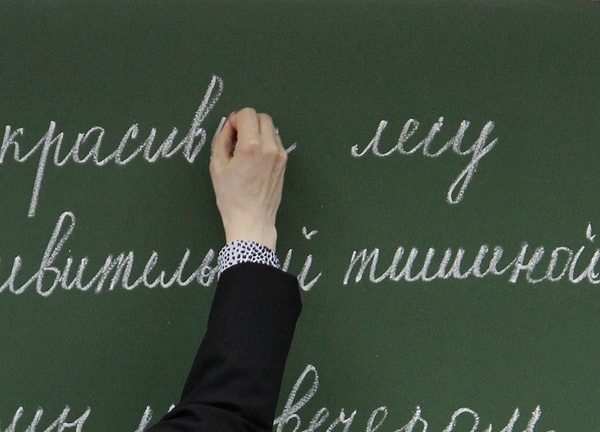 красив лесу
ивитель й тишиной
вечером